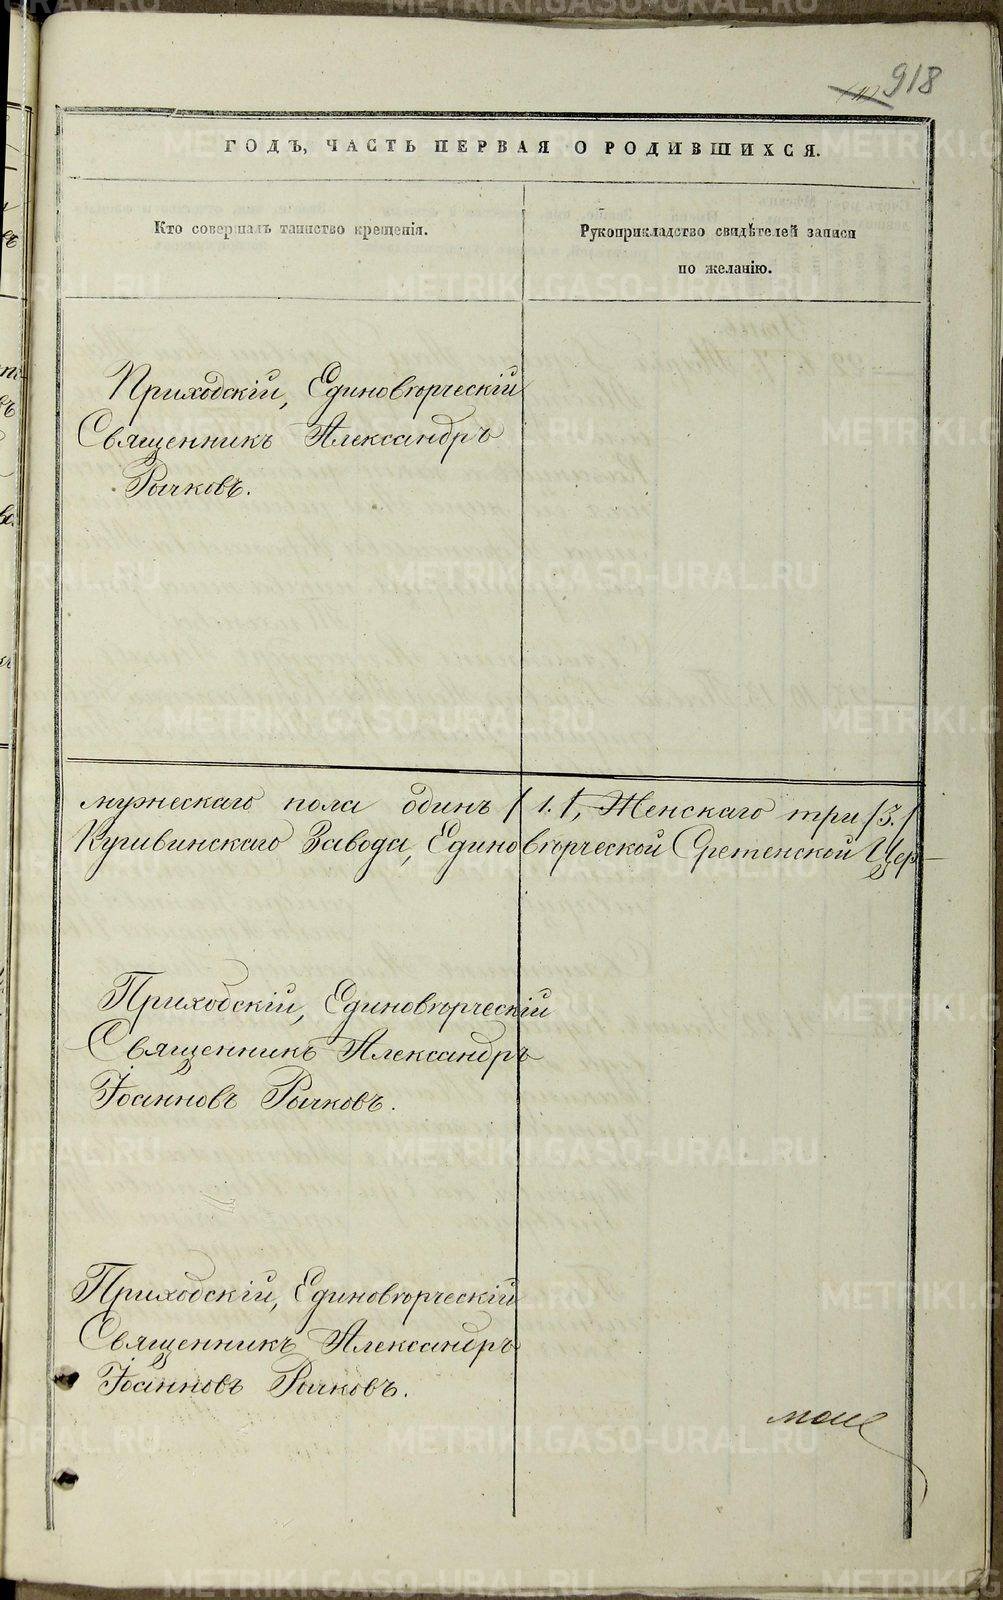 918
ГОДЪ, ЧАСТЬ ПЕРВАЯ О РОДИВШИХСЯ.
Кто совершалъ таинство крещенія.
Рукоприкладство свидѣтелей записи
по желанію.
Приходскій, Единовѣрческій
Священникъ Александръ
Рычковъ.
мужескаго пола одинъ /1./, Женскаго три /3./
Кушвинскаго Завода, Единовѣрческой Сретенской Цер-
Приходскій, Единовѣрческій
Священникъ Александръ
Іоанновъ Рычковъ.
Приходскій, Единовѣрческій
Священникъ Александръ
Іоанновъ Рычковъ.
METRIKI.GASO-URAL.RU